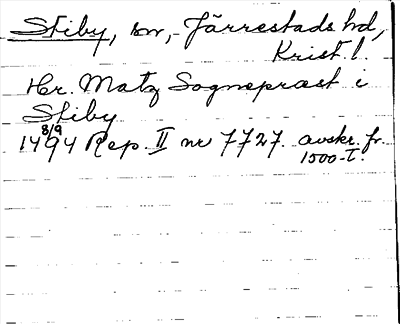 Stiby, sn, Järrestads hd,
Krist. l.
Hr. Matz Sognepræst i
Stiby
1494 8/9 Rep. II nr 7727. avskr. fr.
1500-t.